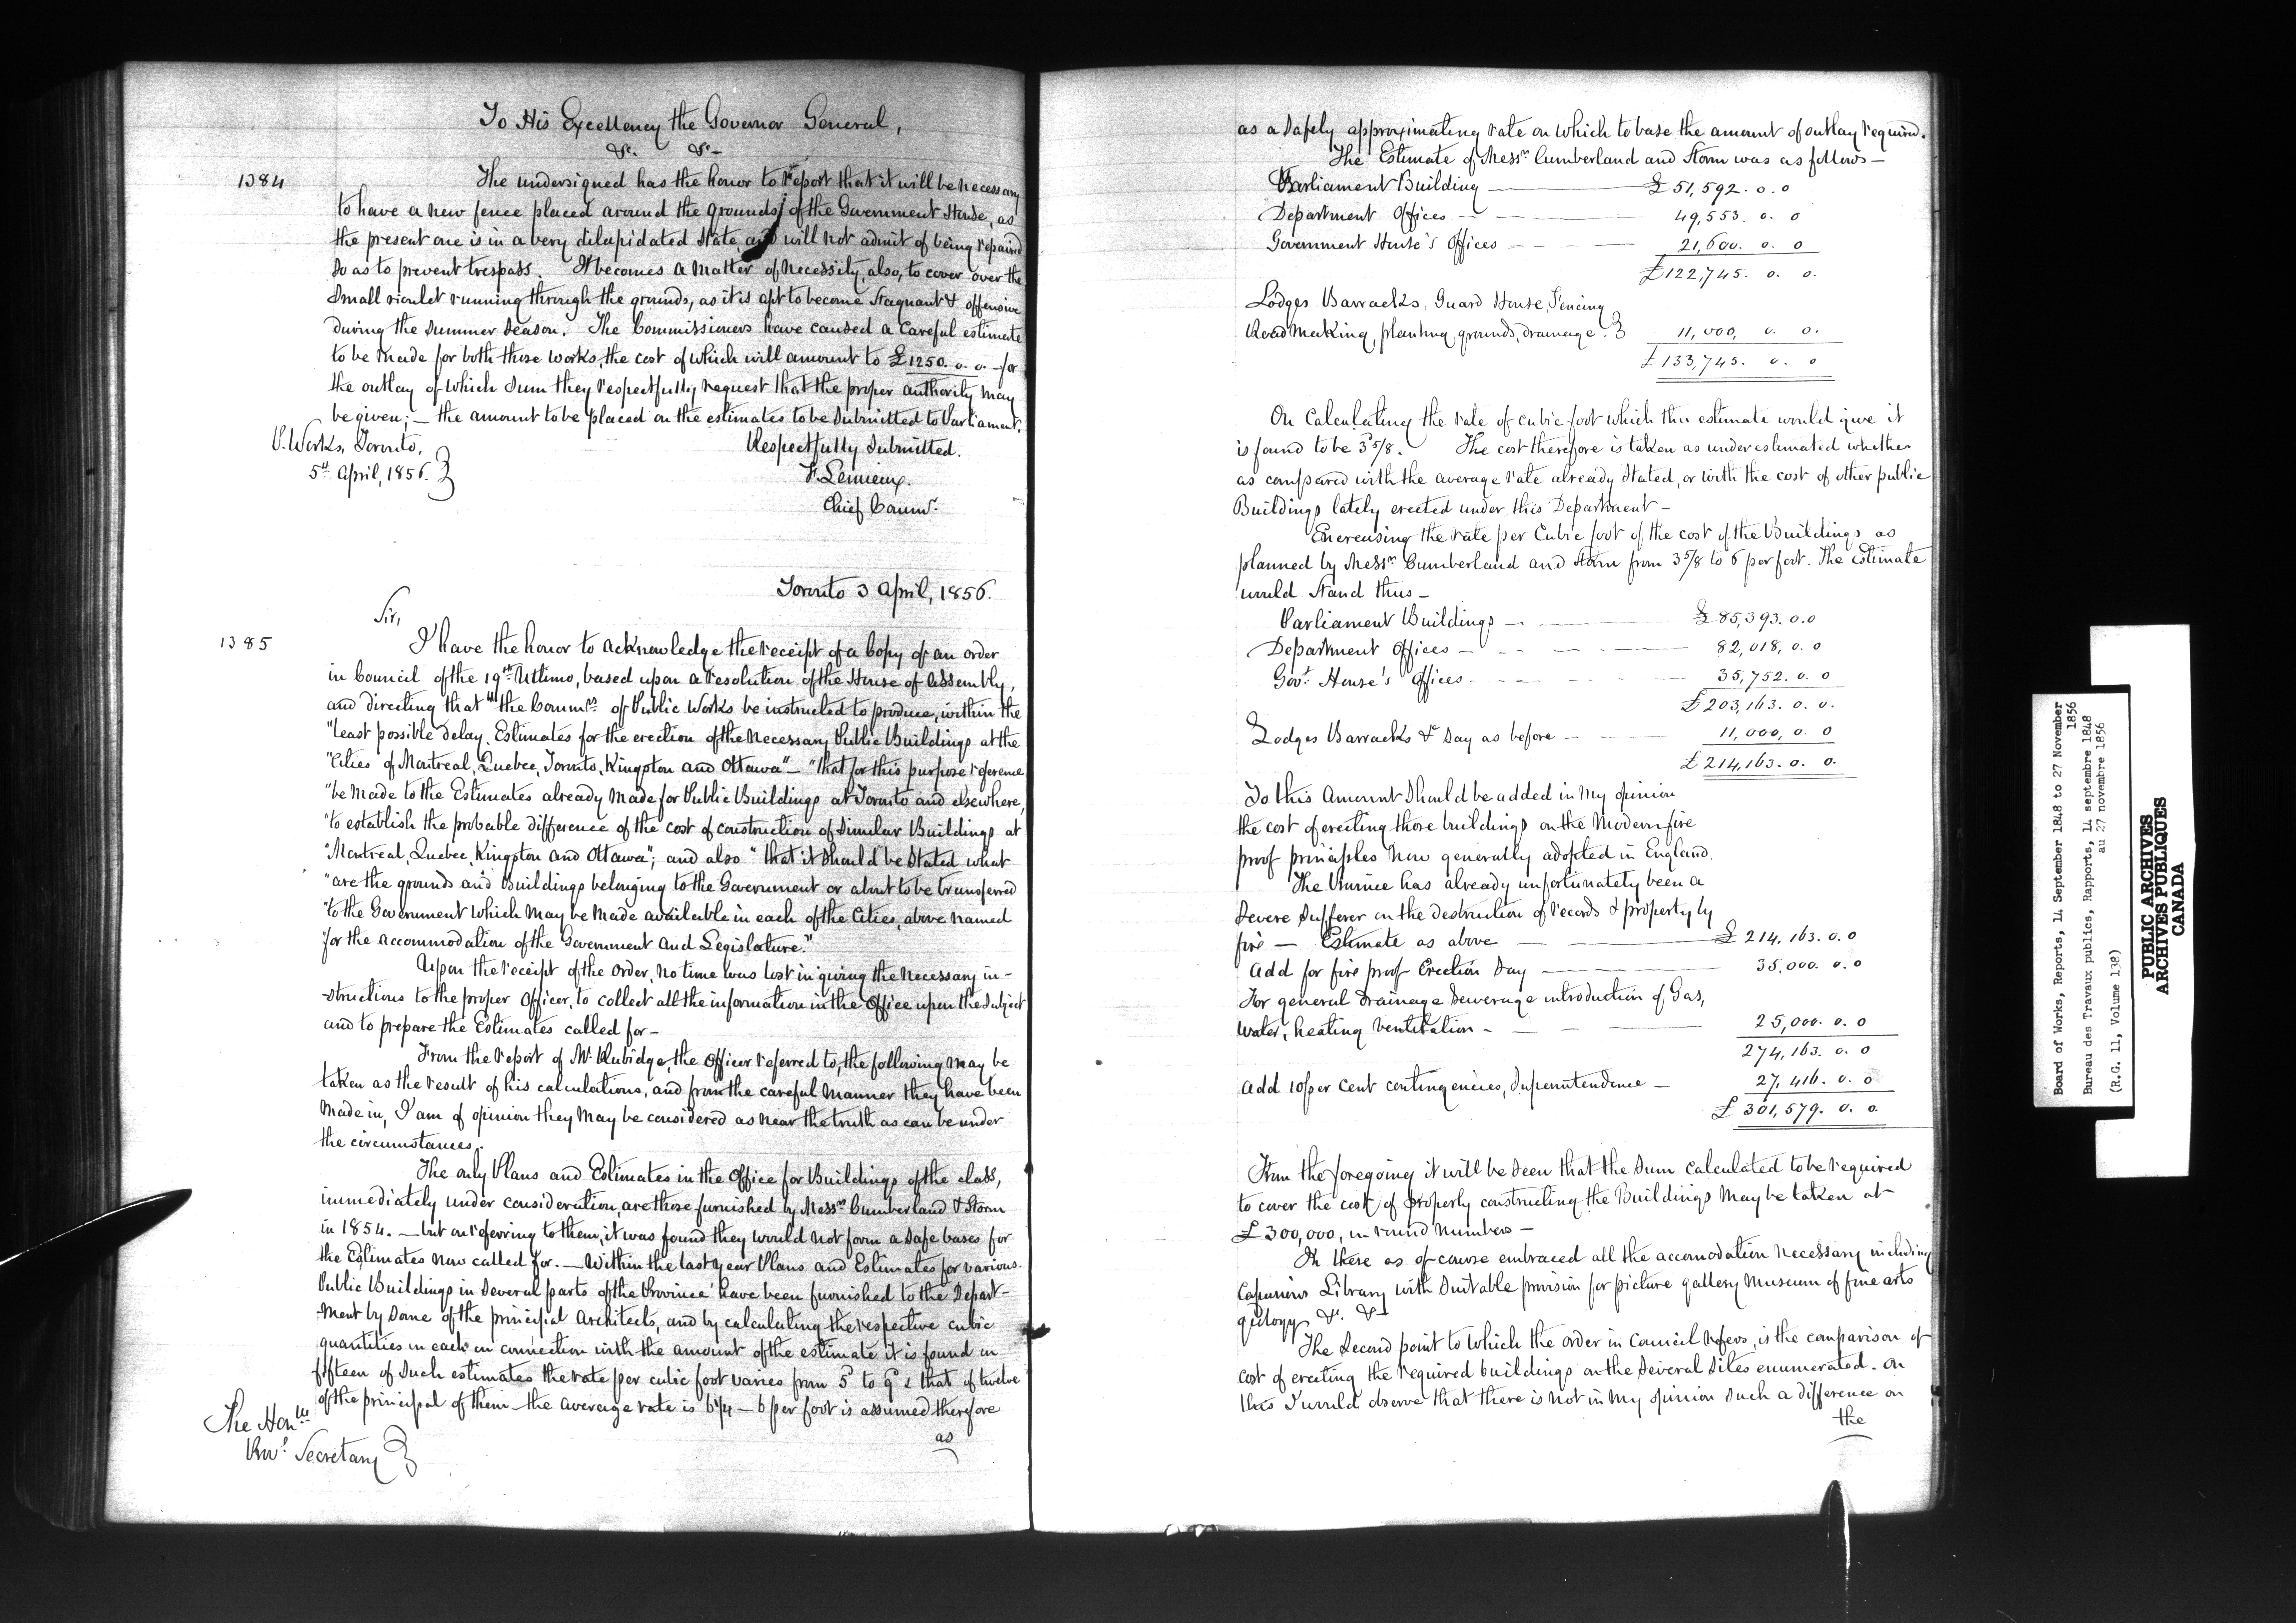 To His Excellency the Governor General,
&c. &c-
1384
The undersigned has the honor to report that it will be necessary
to have a new fence placed around the grounds of the Government House, as
the present one is in a very dilapidated state, and will not admit of being repaired
so as to prevent trespass. It becomes a matter of necessity, also, to cover over the
small rivulet running through the grounds, as it is apt to become stagnant & offensive
during the summer season. The Commissioners have caused a careful estimate
to be made for both these works, the cost of which will amount to £1250. 0. 0. - for
the outlay of which sum they respectfully request that the proper authority may
be given; - the amount to be placed on the estimates to be submitted to Parliament.
P. Works, Toronto,
5th April, 1856.
Respectfully submitted.
F. Lemieux.
Chief Commr.
Toronto 3 April, 1856.
Sir,
1385
I have the honor to acknowledge the receipt of a Copy of an order
in Council of the 19th Ultimo, based upon a resolution of the House of Assembly,
and directing that "the Commrs of Public Works be instructed to produce, within the
"least possible delay, Estimates for the erection of the necessary Public Buildings at the
"Cities of Montreal, Quebec, Toronto, Kingston and Ottawa" - "that for this purpose reference
"be made to the Estimates already made for Public Buildings at Toronto and elsewhere,
"to establish the probable difference of the cost of construction of similar Buildings at
"Montreal, Quebec, Kingston and Ottawa"; and also "that it should be stated what
"are the grounds and Buildings belonging to the Government or about to be transferred
"to the Government which may be made available in each of the Cities, above named
"for the accommodation of the Government and Legislature."
Upon the receipt of the Order, no time was lost in giving the necessary in-
-structions to the proper Officer, to collect all the information in the Office upon the subject
and to prepare the Estimates called for -
From the report of Mr Rubidge, the Officer referred to, the following may be
taken as the result of his calculations, and from the careful manner they have been
made in, I am of opinion they may be considered as near the truth as can be under
the circumstances.
The only Plans and Estimates in the Office for Buildings of the class,
immediately under consideration, are those furnished by Messrs Cumberland & Storm
in 1854. - but on referring to them, it was found they would not form a safe bases for
the Estimates now called for. - Within the last year Plans and Estimates for various
Public Buildings in several parts of the Province have been furnished to the Depart-
-ment by some of the principal Architects, and by calculating the respective cubic
quantities in each in connection with the amount of the estimate it is found in
fifteen of such estimates the rate per cubic foot varies from 5d to 9d & that of twelve
of the principal of them the average rate is 6¼ - 6 per foot is assumed therefore
as
The Honble
Prov. Secretary
as a safely approximating rate on which to base the amount of outlay required.
The Estimate of Messrs Cumberland and Storm was as follows -
Parliament Building - £ 51,592. 0. 0
Department Offices - 49,553. 0. 0
Government House's Offices - 21,600. 0. 0
£122,745. 0. 0.
Lodges Barracks, Guard House, Fencing
Road making, planting, grounds, drainage. 11,000, 0. 0.
£133,745. 0. 0
On Calculating the rate of cubic foot which this estimate would give it
is found to be 3d 5/8. The cost therefore is taken as under estimated whether
as compared with the average rate already stated, or with the cost of other public
Buildings lately erected under this Department -
Encreasing the rate per Cubic foot of the cost of the Buildings as
planned by Messrs Cumberland and Storm from 3 5/8 to 6 per foot. The Estimate
would stand thus -
Parliament Buildings - £85,393. 0. 0
Department Offices - 82,018, 0. 0
Govt. House's Offices - 35,752. 0. 0
£203,163. 0. 0.
Lodges Barracks &c say as before - 11,000, 0. 0
£214,163. 0. 0.
To this Amount should be added in my opinion
the cost of erecting those buildings on the modern fire
proof principles now generally adopted in England.
The Province has already unfortunately been a
severe sufferer in the destruction of records & property by
fire - Estimate as above - £214,163. 0. 0
Add for fire proof Erection say - 35,000. 0. 0
For general drainage sewerage introduction of Gas,
water, heating ventilation - 25,000. 0. 0
274,163. 0. 0
Add 10 per cent contingencies, Superintendence - 27,416. 0. 0
£301,579. 0. 0.
From the foregoing it will be seen that the sum calculated to be required
to cover the cost of properly constructing the Buildings may be taken at
£300,000, in round numbers -
In these as of course embraced all the accomodation necessary including
Capacious Library with suitable provision for picture gallery museum of fine arts
geology &c. &c-
The second point to which the order in Council refers, is the comparison of
cost of erecting the required buildings on the several sites enumerated. On
this I would observe that there is not in my opinion such a difference on
the
Board of Works, Reports, 14 September 1848 to 27 November
1856
Bureau des Travaux publics, Rapports, 14 septembre 1848
au 27 novembre 1856
(R.G. 11, Volume 138)
PUBLIC ARCHIVES
ARCHIVES PUBLIQUES
CANADA